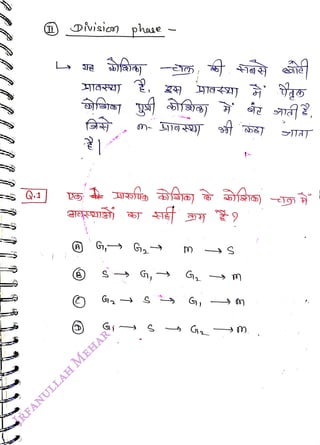 II Division phase -
↳ यह कोशिका - चक्र की सबसे छोटी
प्रावस्था है, इस प्रावस्था में पैतृक
कोशिका पुत्री कोशिका में बंट जाती है,
जिसे m- प्रावस्था भी कहा जाता
है|
Q.1 एक प्रारूपिक कोशिका के कोशिका -चक्र में
अवस्थाओं का सही क्रम है ?
A G₁ → G₂ → m → S
B S → G₁ → G₂ → m
C G₂ → S → G₁ → m
D G₁ → S → G₂ → m
IRFANULLAH MEHAR